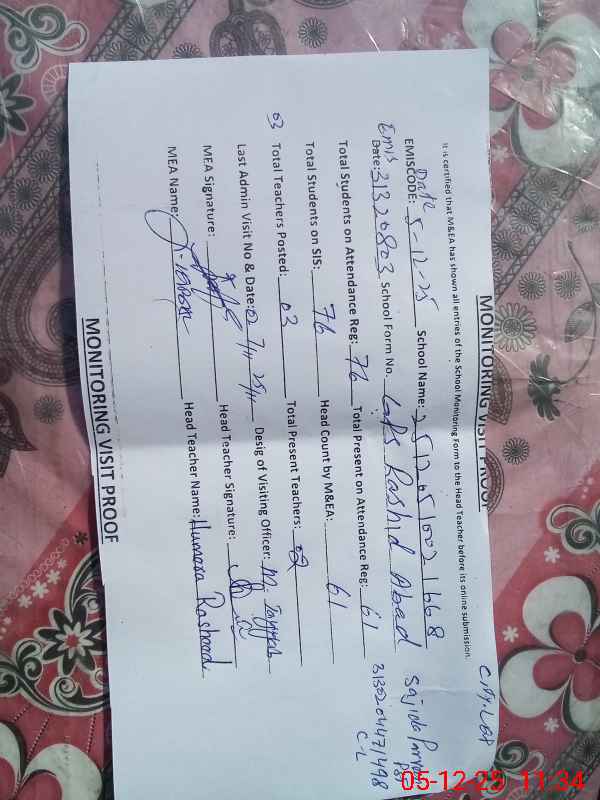 MONITORING VISIT PROOF
City. LQP
It is certified that M&EA has shown all entries of the School Monitoring Form to the Head Teacher before its online submission.
Date
EMISCODE: 5-12-25 School Name: 25120510021668 Sajida Parveen
PST
Emis
Date: 31320803 School Form No. GGPS Rashid Abad
Total Students on Attendance Reg: 76 Total Present on Attendance Reg: 61 3130204471498
C-L
Total Students on SIS: 76 Head Count by M&EA: 61
03 Total Teachers Posted: 03 Total Present Teachers: 02
Last Admin Visit No & Date: 02 Desig of Visiting Officer:
MEA Signature: Head Teacher Signature:
MEA Name: Head Teacher Name: Humera Rasheed
MONITORING VISIT PROOF
05-12-25 11:34